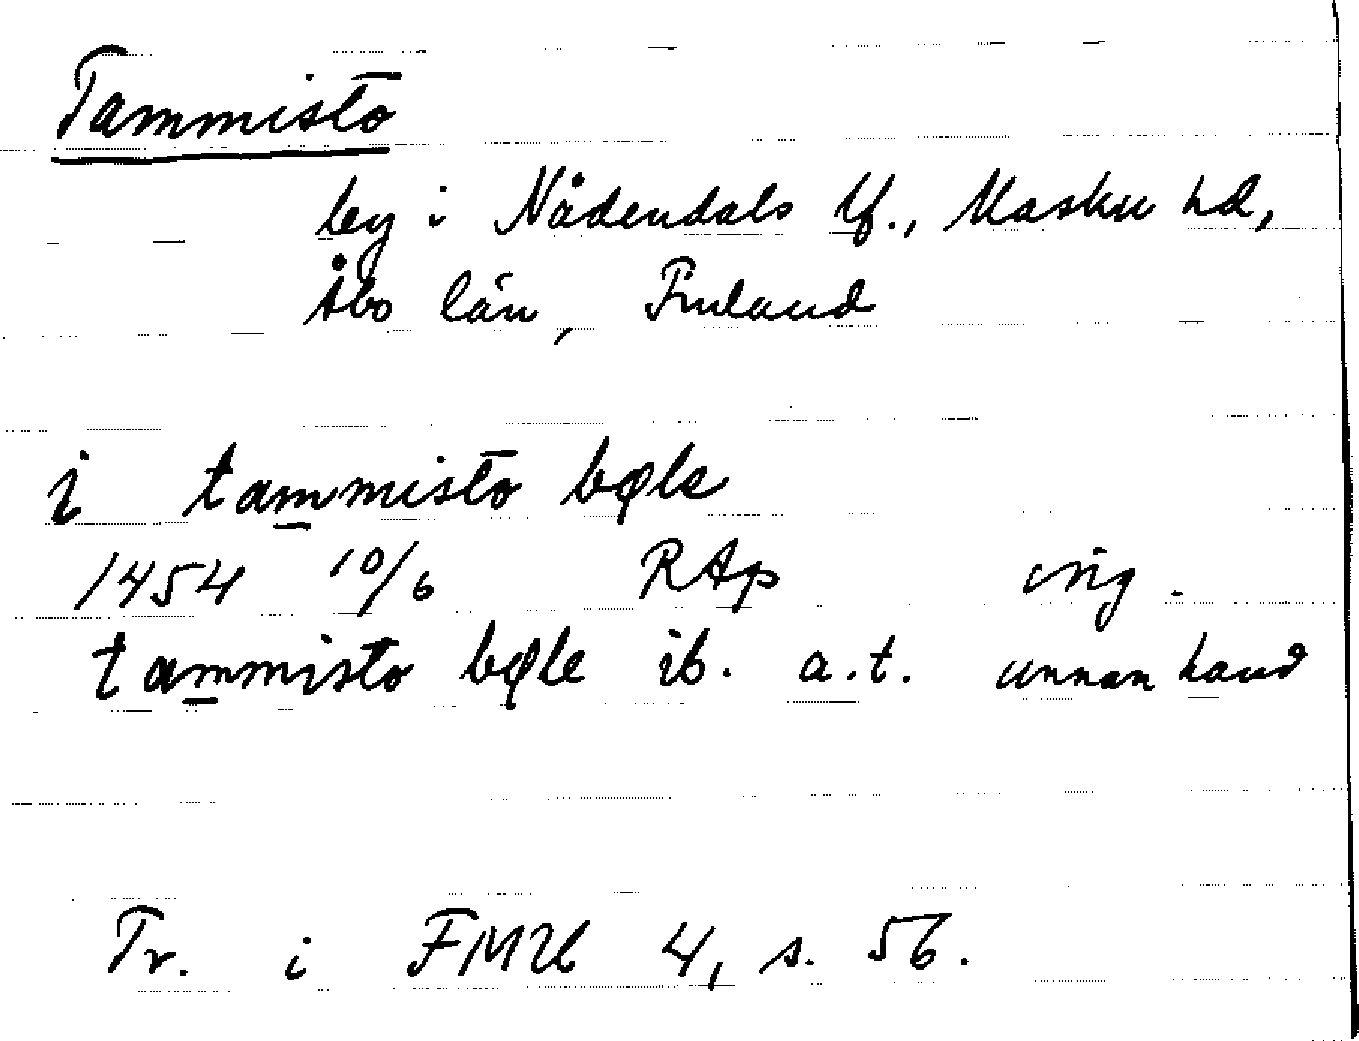 Tammisto
by i Nådendals lf., Masku hd,
Åbo län, Finland
i tammisto bøle
1454 10/6 RAp orig.
tammisto bøle ib. a.t. annan hand
Tr. i FMU 4, s. 56.